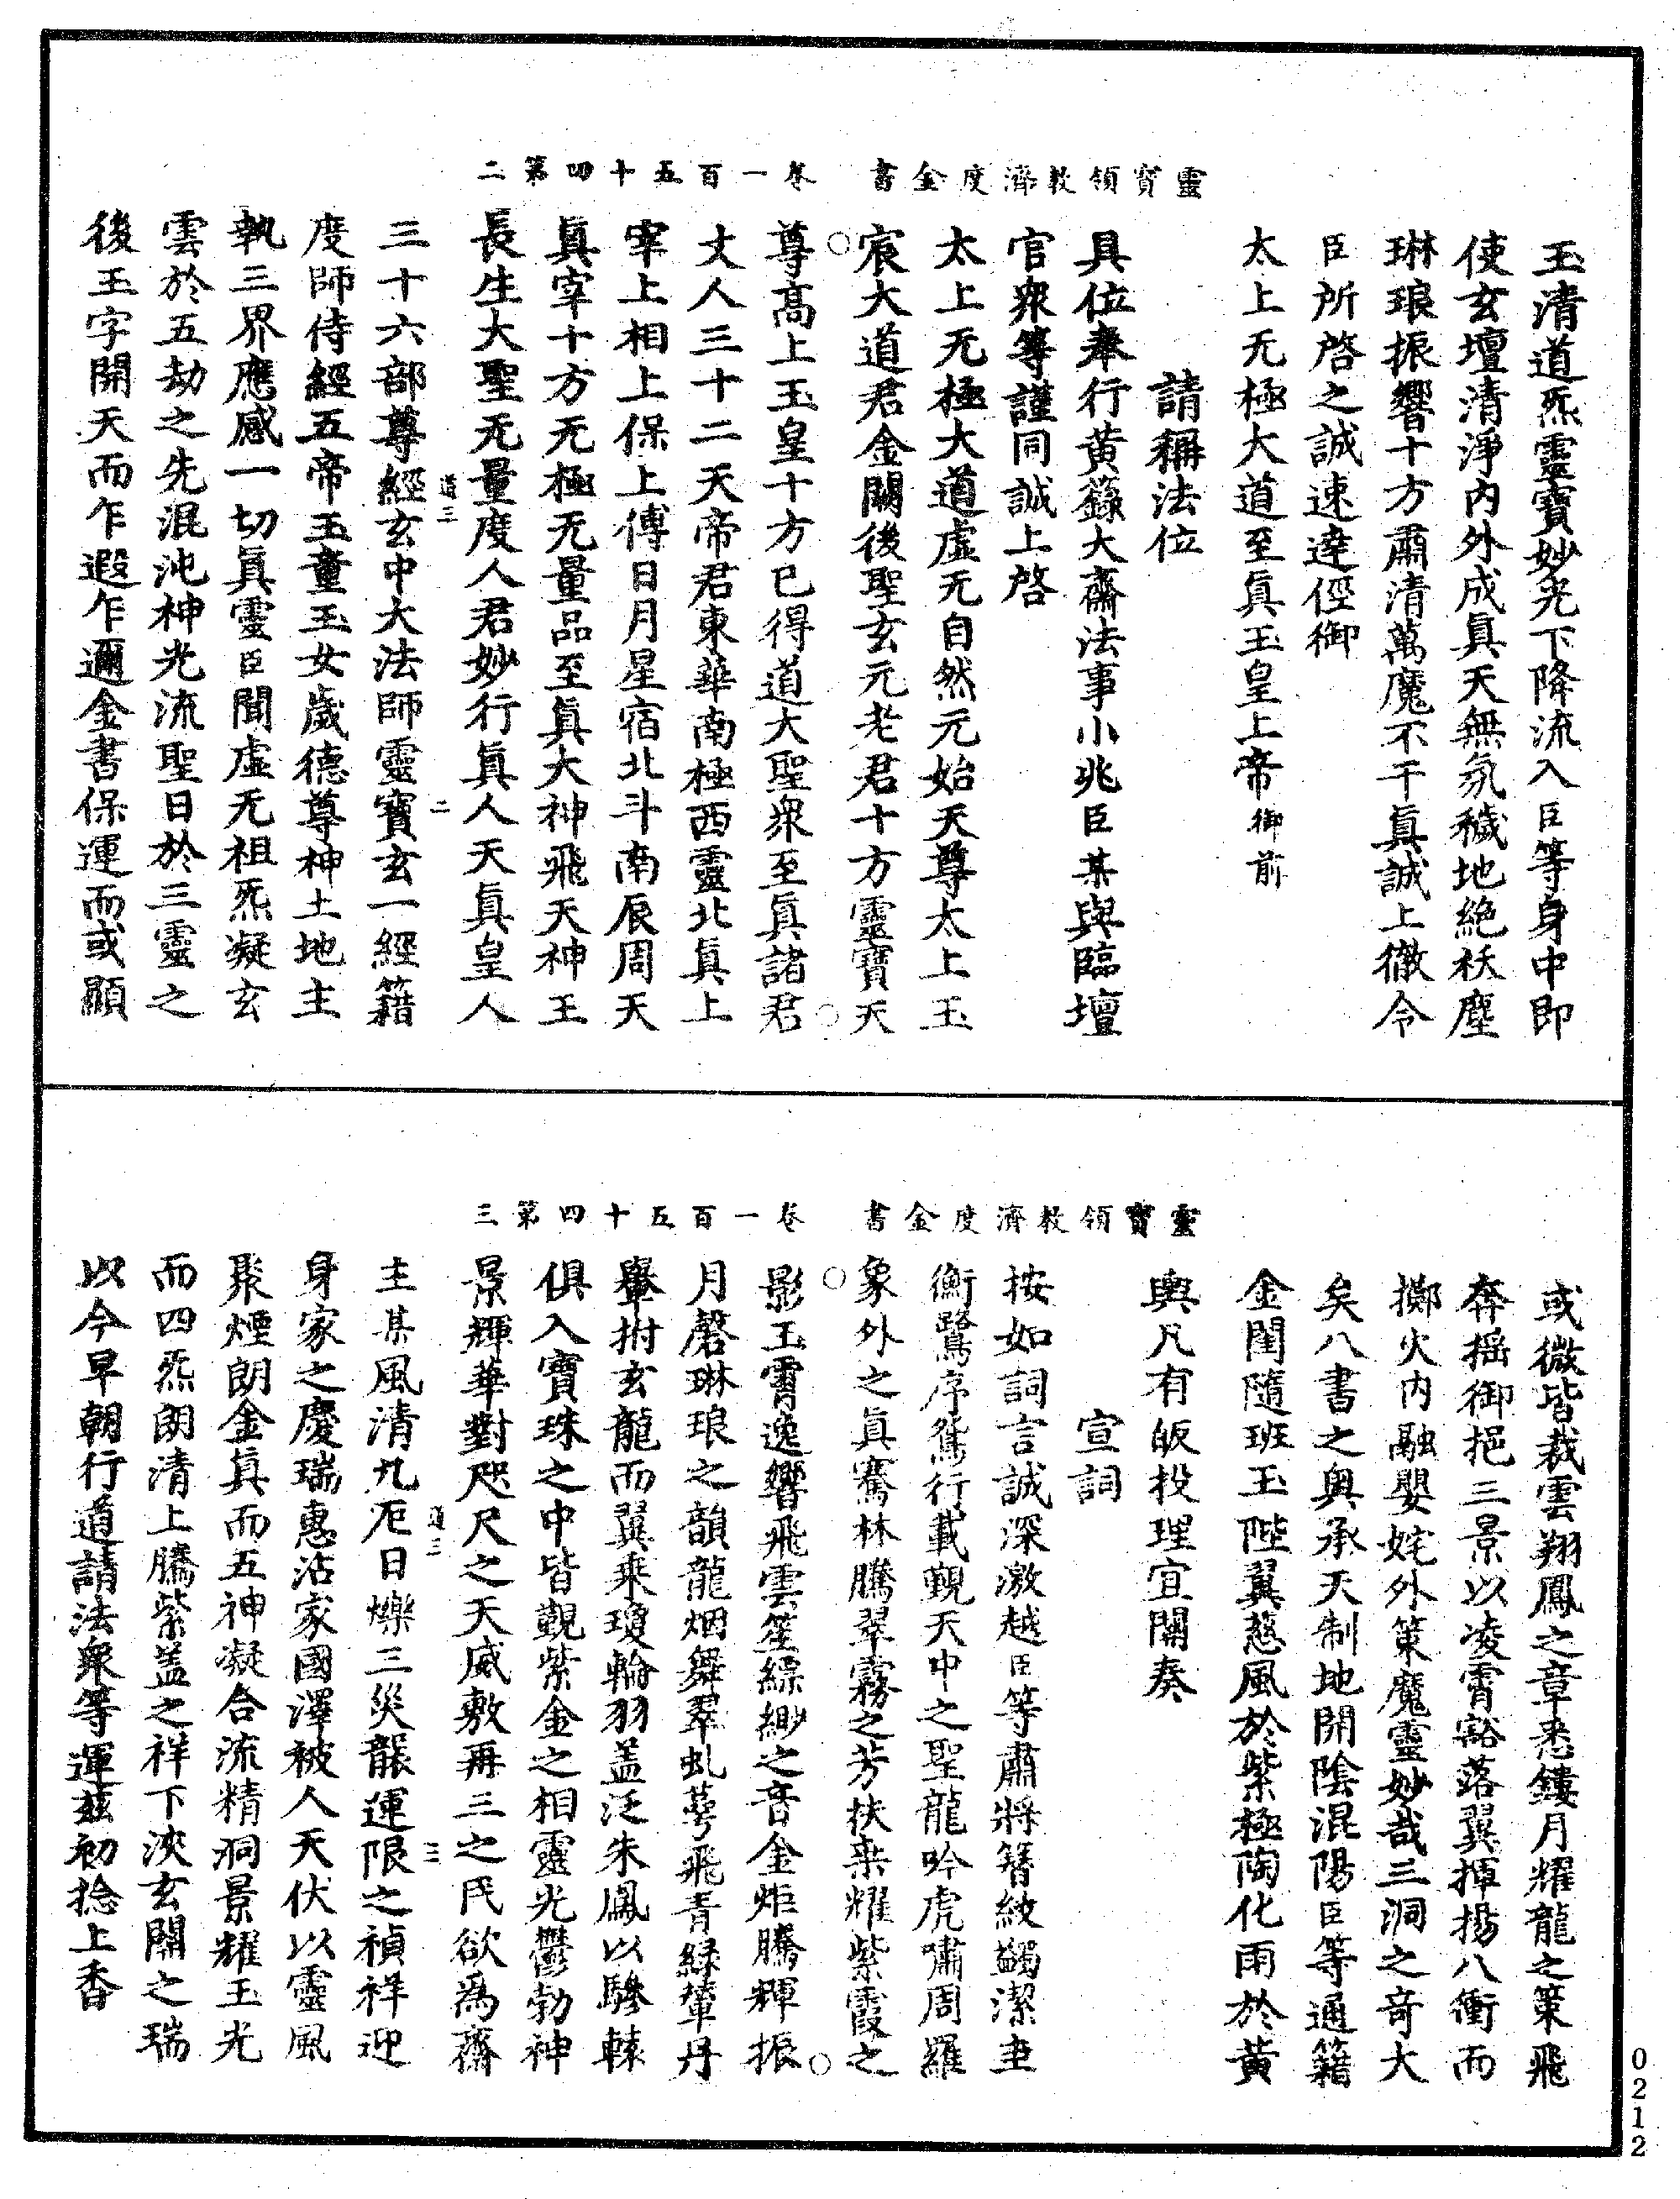 靈寶領教濟度金書　卷一百五十四第二
玉清道炁靈寶妙光下降流入臣等身中即
使玄壇清淨内外成眞天無氛穢地絶袄塵
琳琅振響十方肅清萬魔不干眞誠上徹令
臣所啓之誠速達徑御
太上无極大道至眞玉皇上帝御前
請稱法位
具位奉行黄籙大齋法事小兆臣某與臨壇
官衆等謹同誠上啓
太上无極大道虚无自然元始天尊太上玉
宸大道君金闕後聖玄元老君十方靈寶天
尊髙上玉皇十方已得道大聖衆至眞諸君
丈人三十二天帝君東華南極西靈北眞上
宰上相上保上傅日月星宿北斗南辰周天
眞宰十方无極无量品至眞大神飛天神王
長生大聖无量度人君妙行眞人天眞皇人
道三　二
三十六部尊經玄中大法師靈寶玄一經籍
度師侍經五帝玉童玉女歲德尊神土地主
執三界應感一切眞靈臣聞虚无祖炁凝玄
雲於五劫之先混沌神光流聖日於三靈之
後玉字開天而乍遐乍邇金書保運而或顯
靈寶領教濟度金書　卷一百五十四第三
或微皆裁雲翔鳳之章悉鏤月耀龍之策飛
奔搖御挹三景以凌霄豁落翼揮揚八衝而
擲火内融嬰姹外策魔靈妙哉三洞之竒大
矣八書之奥承天制地開陰混陽臣等通籍
金閨隨班玉陛翼慈風於紫極陶化雨於黄
輿凡有皈投理宜關奏
宣詞
按如詞言誠深激越臣等肅將簪紱蠲潔圭
衡鷺序鵞行載覲天中之聖龍吟虎嘯周羅
象外之眞騫林騰翠霧之芳扶桒耀紫霞之
影玉霄逸響飛雲笙縹緲之音金炬騰輝振
月磬琳琅之韻龍烟舞翠虬蕚飛青緑輦丹
轝拊玄龍而翼乗瓊輪羽盖泛朱鳳以驂轅
俱入寶珠之中皆覩紫金之相靈光鬱勃神
景輝華對咫尺之天威敷再三之民欲爲齋
道三　三
主某風清九厄日爍三災龍運限之禎祥迎
身家之慶瑞惠沾家國澤被人天伏以靈風
聚煙朗金眞而五神凝合流精洞景耀玉光
而四炁朗清上騰紫盖之祥下浹玄關之瑞
以今早朝行道請法衆等運兹初捻上香
0212